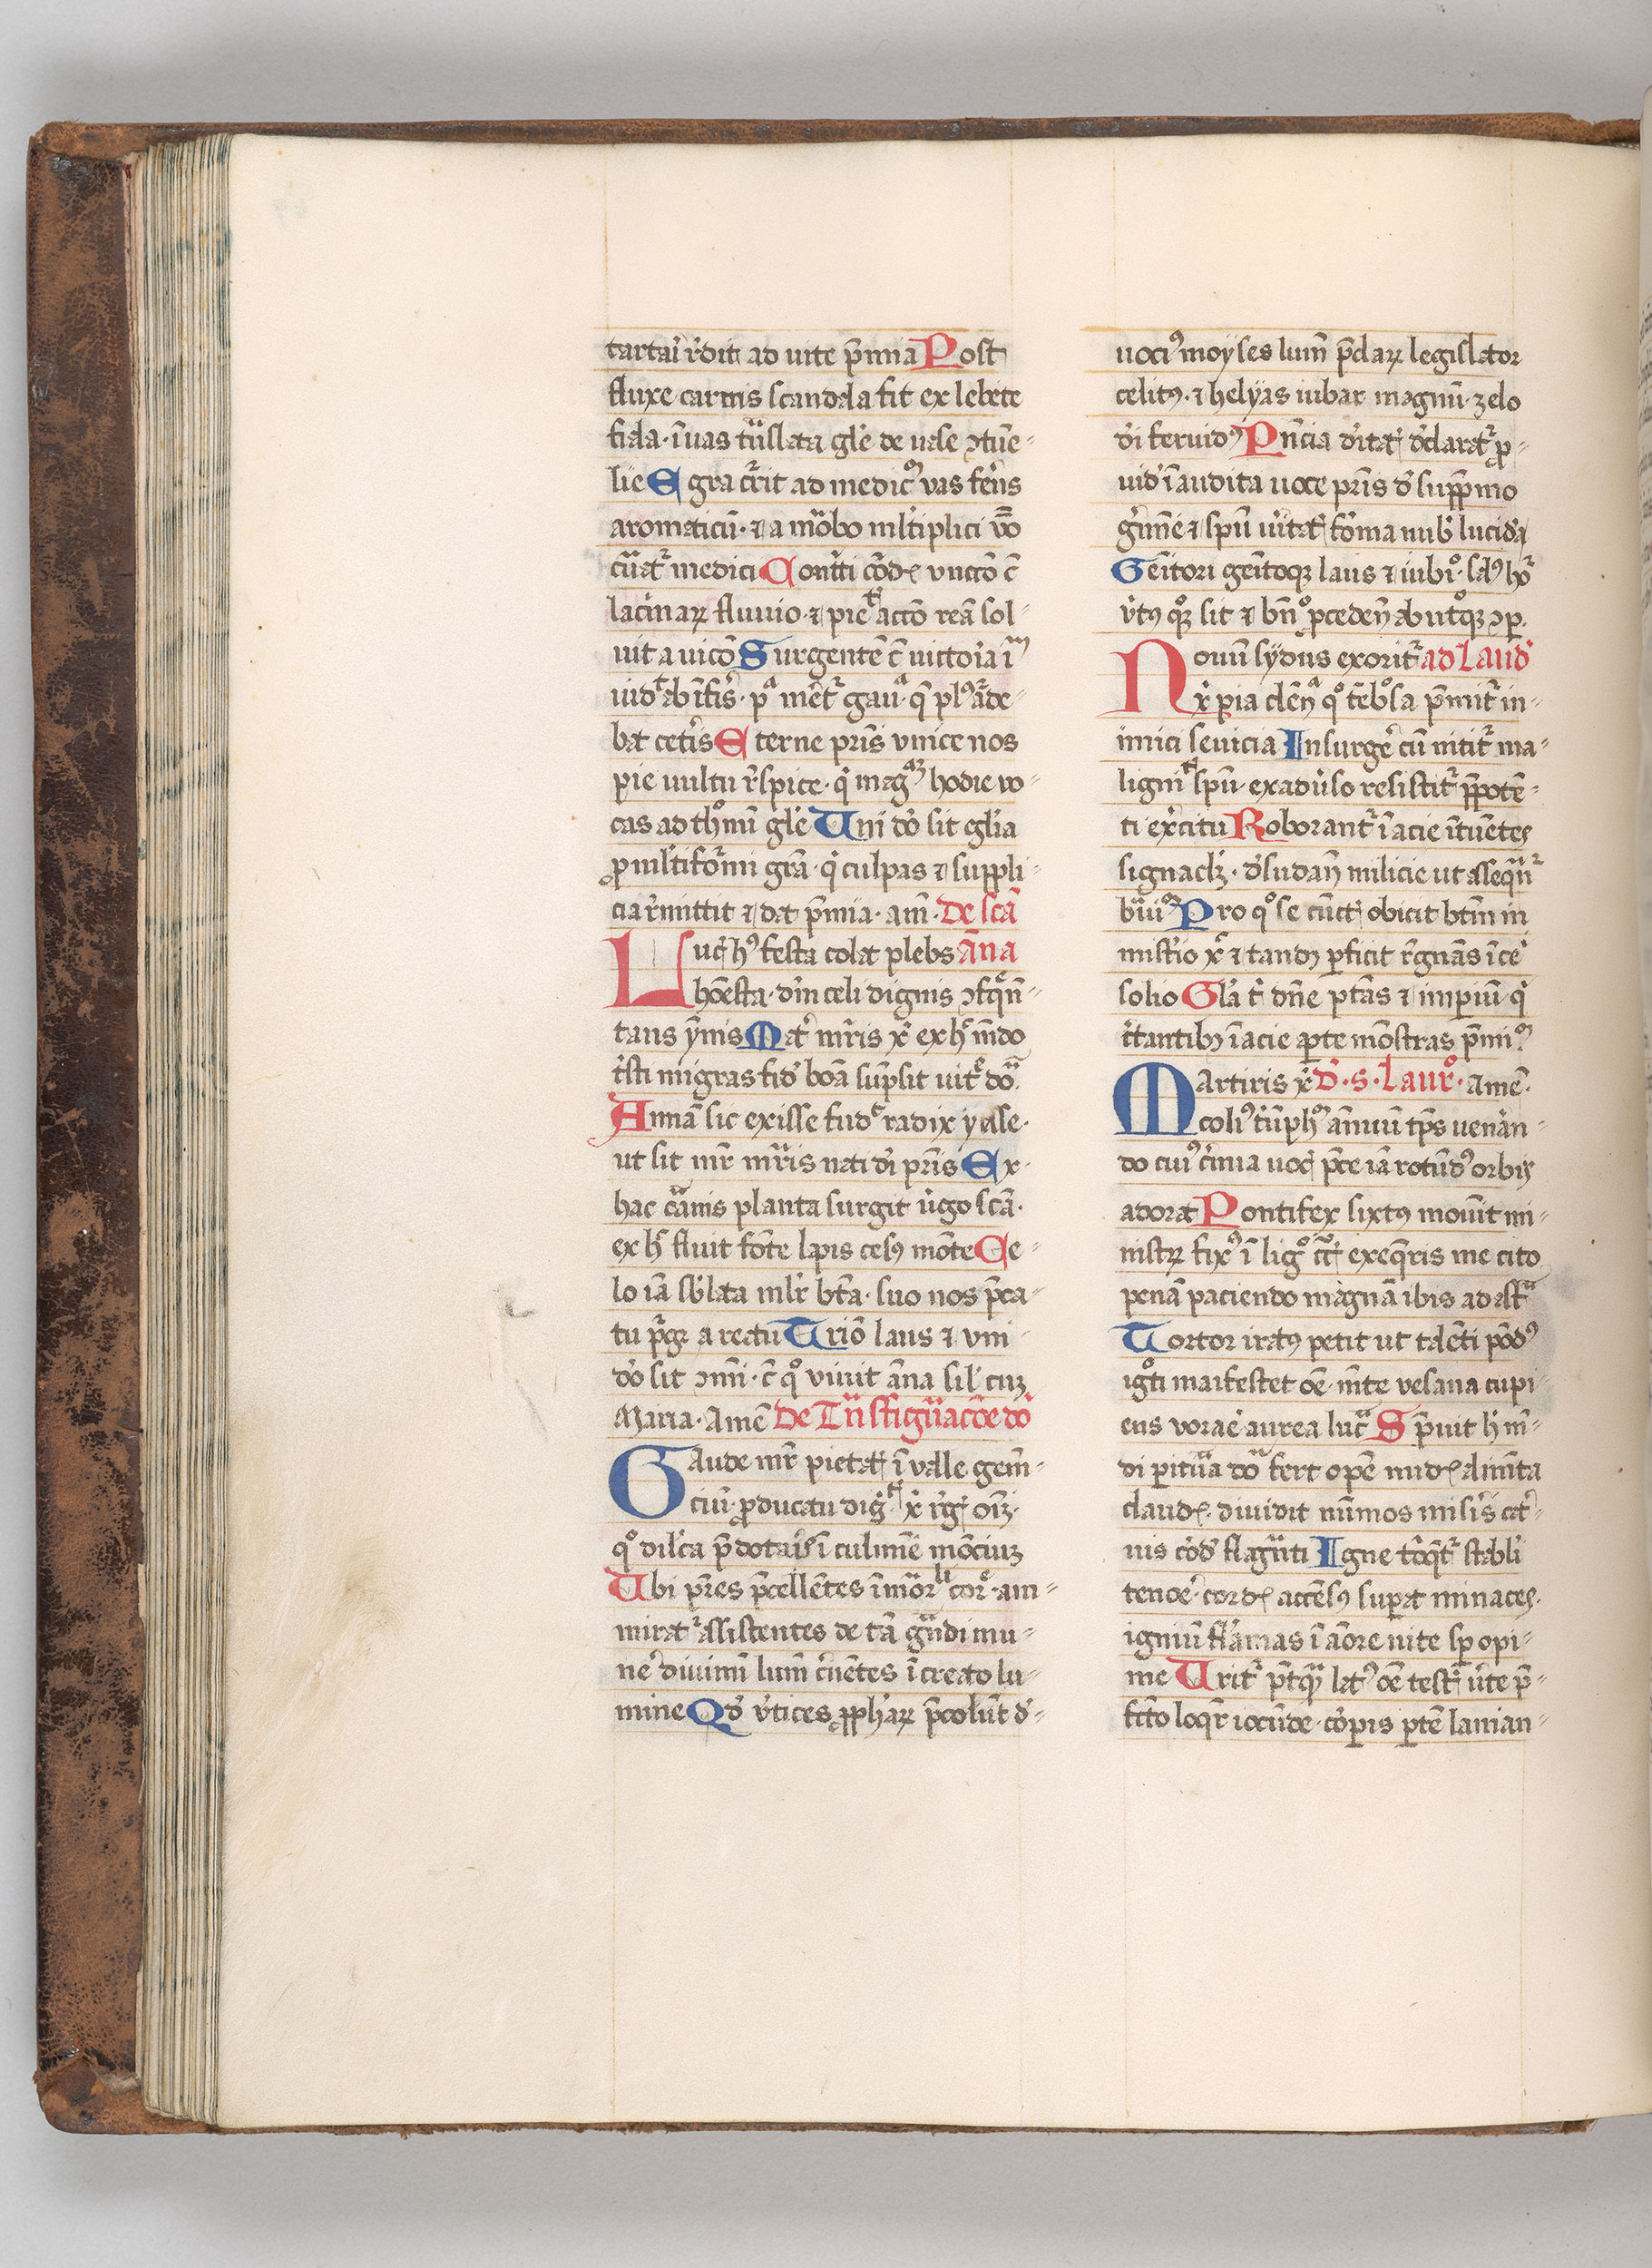 tartari r͛dit ad uite p̄mia Post
fluxe carnis scandala fit ex lebete
fiala · ī uas tͣnslata gl̄e de uase ꝯtūe⸗
lie Egra cͬrit ad medicū vas ferēs
aromaticū · ⁊ a morbo mlͥtiplici v̄bo
curatͬ medici Contriti cōdͥs vnctō c̄
lacͥmaꝝ fluuio · ⁊ pie actō reā sol⸗
uit a uicō Surgentē c̄ victoria
uidͭ ab īfīs · pͣ mēt gauͣ q̄ plꝰ arde⸗
bat cetīs Eterne pr̄is vnice nos
pie uultu r͛spice · qͥ magͣ hodie vo⸗
cas ad thͦnū gl̄e Uni dō sit gl̄ia
ꝓ mlͥtiformi gr̄a · qͥ culpas ⁊ suppli⸗
cia r͛mittit ⁊ dat p̄mia · am̄ · De scā
Lucͥs hꝰ festa colat plebs āna
hōesta · dīn celi dignis ꝯfꝗn̄⸗
tans ẏmis Matͥ mr̄is xͥ ex hͨ mūdo
tͥsti migras fidͥ bōa sūpsit uitͤ doͣ
Annā sic exisse fudͭ radix yesse ·
ut sit mr̄ mr̄is nati dī pr̄is Ex
hac carnis planta surgit ūgo scā ·
ex hͨ fluit fōte lapis cesꝰ mōte Ce⸗
lo iā sblata mlr̄ bt̄a · suo nos p̄ca⸗
tu p̄ge a reatu Triō laus ⁊ vni
dō sit ꝯmī · c̄ qͦ viuit āna sil̄ cuꝫ
Maria · Amē De Tn̄sfiguͣacōe dō
Gaude mr̄ pietatͥ ī valle gem̄⸗
ciū · ꝓducatu digͣ xͥ rͤgͥ oīꝫ
qͦ dilc̄a p̄dotaris ī culmīe mōciuꝫ
Ubi pr̄es p̄cellētes īmorͣlͥ corͤ · am⸗
miratͬ assistentes de tā gͣndi mu⸗
neͤ diuinū lum̄ cͤnētes īcreato lu⸗
mine Qdͥ vͤtices ꝓphaꝝ p̄colūt dͤ⸗
uociꝰ moyses lum̄ p̄claꝝ legislator
celitꝰ · ⁊ helyas iubar magnū · zelo
dͥi feruidꝰ Pn̄cia dͥitatͥ dͤclaratͬ ꝓ⸗
uidͤ īaudita uoce pr̄is dͤ supp̄mo
gͤmīe ⁊ spū uͤitatͥ foͬma nubͥ lucide
Gēitori gēitoqꝫ laus ⁊ iubiͦ · salꝰ hōr
vͥtꝰ qͦꝫ sit ⁊ bn̄ꝰ ꝓceden̄ ab utͦqꝫ ꝯp̱
Nouū sydus exoritͬ ad Laudͥ
xͥ pia clēn̄ qͦ tēbͦsa p̄mitͬ in⸗
imici seuicia Insurgē cū nititͬ ma⸗
ligniͭ spū · ex aduͤso resistitͬ p̄potē⸗
ti exͤcitu Roborantͬ ī acie ītuētes
signaclꝫ · dͤsudan̄ milicie ut asseq̄n̄ͬ
brauiͦ Pro qͦ se cūctͥ obicit btm̄ in
mistͤio xͥ ⁊ tandē p̱ficit rͤgnās ī ceͥ
solio Glā tͥ dn̄e ptās ⁊ imp̱iū qͥ
cͤtantibꝫ ī acie ap̱te mōstras p̄miͦ
Martiris xͥ D · s · Laurͦ · amē ·
coliꝰ tūphͦ ānuū tp̄s uenͤan⸗
do cuiꝰ cͥmia uocͥ p̄ce iā rotūdꝰ orbis
adorat Pontifex sixtꝰ mouīt mi⸗
nistꝝ fixꝰ ī ligͦ exeq̄ris me cito
penā paciendo magnā ibis ad astͣ
Tortor iratꝰ petit ut talēti pōdꝰ
igͦti maifestet oē · mēte vesana cupi⸗
ens voraē aurea lucͣ Spuit hͥ mū⸗
di p̱ituͣa doͣ fert opē nudͥ alimēta
claudͥ · diuidit nūmos misīs catͤ⸗
uis coͬdͤ flagrͣnti Igne tͦqͤtͬ stabͥlͥ
tenoē · cordͥ accēsꝰ sup̱at minaces ·
igniū flāmas ī amore uite sp̱ opi⸗
me Uritͬ pꝰtqͣ latꝰ oē testͥ uͤte p̄⸗
fcͥto loqr̄ iocūde · corꝑis p̱tē lanian⸗